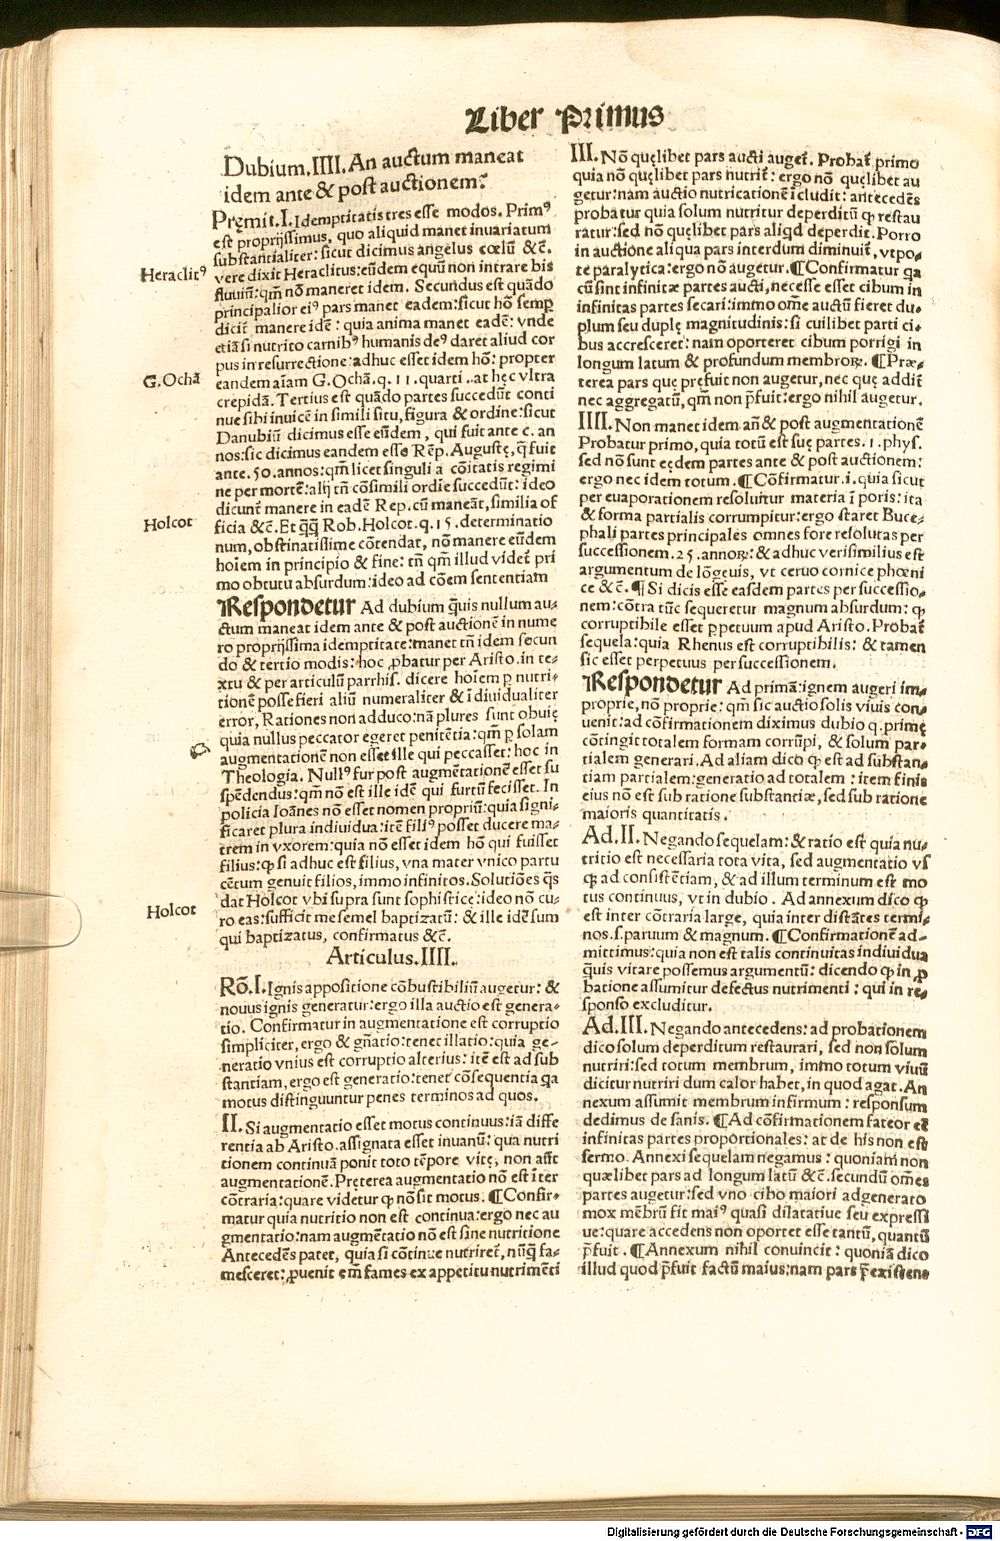 Liber Primus
Dubium.IIII.An auctum maneat
idem ante & post auctionem?
Pręmit.I.Idemptitatis tres esse modos.Primꝰ
est proprijssimus, quo aliquid manet inuariatum
substantialiter:sicut dicimus angelus cœlū &c̄.
Heraclitꝰ
vere dixit Heraclitus:eūdem equū non intrare bis
fluuiū:qm̄ nō maneret idem. Secundus est quādo
principalior eiꝰ pars manet eadem:sicut hō semꝑ
dicit̄ manere idē: quia anima manet eadē: vnde
etiā si nutrito carnibꝰ humanis deꝰ daret aliud cor
pus in resurrectione:adhuc esset idem hō: propter
G.Ochā
eandem aīam G.Ochā.q.11.quarti..at hęc vltra
crepidā.Tertius est quādo partes succedūt conti
nue sibi inuicē in simili situ,figura & ordine:sicut
Danubiū dicimus esse eūdem, qui fuit ante c. an
nos:sic dicimus eandem esse Rēp.Augustę, q̄ fuit
ante.50.annos:qm̄ licet singuli a cōitatis regimi
ne per mortē:alij tn̄ cōsimili ordīe succedūt:ideo
dicunt̄ manere in eadē Rep.cū maneāt,similia of
Holcot
ficia &c̄.Et q̄q̄ Rob.Holcot.q.15.determinatio
num,obstinatissime cōtendat, nō manere eūdem
hoīem in principio & fine: tn̄ qm̄ illud videt̄ pri
mo obtutu absurdum:ideo ad cōem sententiam
Respondetur Ad dubium q̄uis nullum au⸗
ctum maneat idem ante & post auctionē in nume
ro proprijssima idemptitate:manet tn̄ idem secun
do & tertio modis:hoc ꝓbatur per Aristo.in te⸗
xtu & per articulū parrhis. dicere hoīem ꝑ nutri⸗
tionē posse fieri aliū numeraliter & īdiuidualiter
error, Rationes non adduco:nā plures sunt obuię
quia nullus peccator egeret penitētia:qm̄ ꝑ solam
augmentationē non esset ille qui peccasset: hoc in
Theologia. Nullꝰ fur post augmētationē esset su
spēdendus:qm̄ nō est ille idē qui furtū fecisset. In
policia Ioānes nō esset nomen propriū:quia signi⸗
ficaret plura indiuidua:itē filiꝰ posset ducere ma⸗
trem in vxorem:quia nō esset idem hō qui fuisset
filius:ꝙ si adhuc est filius, vna mater vnico partu
cētum genuit filios, immo infinitos.Solutiōes q̄s
Holcot
dat Holcot vbi supra sunt sophisticę:ideo nō cu⸗
ro eas:sufficit me semel baptizatū: & ille idē sum
qui baptizatus, confirmatus &c̄.
Articulus.IIII.
Rō.I.Ignis appositione cōbustibiliū augetur: &
nouus ignis generatur:ergo illa auctio est genera⸗
tio. Confirmatur in augmentatione est corruptio
simpliciter, ergo & gn̄atio:tenet illatio:quia ge⸗
neratio vnius est corruptio alterius: itē est ad sub
stantiam, ergo est generatio:tenet cōsequentia qa
motus distinguuntur penes terminos ad quos.
II. Si augmentatio esset motus continuus:iā diffe
rentia ab Aristo.assignata esset inuanū: qua nutri
tionem continuā ponit toto tēpore vitę, non aūt
augmentationē.Pręterea augmentatio nō est īter
cōtraria:quare videtur ꝙ nō sit motus. ¶Confir⸗
matur quia nutritio non est continua:ergo nec au
gmentatio:nam augmētatio nō est sine nutritione
Antecedēs patet, quia si cōtinue nutriret̄, nūq̄ fa⸗
mesceret:ꝓuenit em̄ fames ex appetitu nutrimēti
III. Nō quęlibet pars aucti auget̄. Probat̄ primo
quia nō quęlibet pars nutrit̄: ergo nō quęlibet au
getur:nam auctio nutricationē īcludit: antecedēs
probatur quia solum nutritur deperditū ꝙ restau
ratur:sed nō quęlibet pars aliqd deperdit. Porro
in auctione aliqua pars interdum diminuit̄, vtpo⸗
te paralytica:ergo nō augetur.¶Confirmatur qa
cū sint infinitæ partes aucti,necesse esset cibum in
infinitas partes secari:immo om̄e auctū fieret du⸗
plum seu duplę magnitudinis:si cuilibet parti ci⸗
bus accresceret: nam oporteret cibum porrigi in
longum latum & profundum membroꝝ. ¶Præ⸗
terea pars quę pręfuit non augetur,nec quę addit̄
nec aggregatū, qm̄ non p̄fuit:ergo nihil augetur.
IIII. Non manet idem an̄ & post augmentationē
Probatur primo, quia totū est suę partes.1.phys.
sed nō sunt eędem partes ante & post auctionem:
ergo nec idem totum.¶Cōfirmatur.i.quia sicut
per euaporationem resoluitur materia ī poris:ita
& forma partialis corrumpitur:ergo staret Buce⸗
phali partes principales omnes fore resolutas per
successionem.25.annoꝝ:& adhuc verisimilius est
argumentum de lōgęuis, vt ceruo cornice phœni
ce &c̄.¶Si dicis esse easdem partes per successio⸗
nem:cōtra tūc sequeretur magnum absurdum: ꝙ
corruptibile esset ꝑpetuum apud Aristo.Probat̄
sequela:quia Rhenus est corruptibilis: & tamen
sic esset perpetuus per successionem.
Respondetur Ad primā:ignem augeri im⸗
proprie,nō proprie: qm̄ sic auctio solis viuis con⸗
uenit:ad cōfirmationem diximus dubio q.primę
cōtingit totalem formam corrūpi, & solum par⸗
tialem generari.Ad aliam dico ꝙ est ad substan⸗
tiam partialem:generatio ad totalem: item finis
eius nō est sub ratione substantiæ,sed sub ratione
maioris quantitatis.
Ad.II. Negando sequelam:& ratio est quia nu⸗
tritio est necessaria tota vita, sed augmentatio vs
q̄ ad consistētiam,& ad illum terminum est mo
tus continuus, vt in dubio. Ad annexum dico ꝙ
est inter cōtraria large, quia inter distātes termi⸗
nos.s.paruum & magnum.¶Confirmationē ad⸗
mittimus:quia non est talis continuitas indiuidua
q̄uis vitare possemus argumentū: dicendo ꝙ in ꝓ
batione assumitur defectus nutrimenti: qui in re⸗
sponso excluditur.
Ad.III. Negando antecedens: ad probationem
dico solum deperditum restaurari, sed non solum
nutriri:sed totum membrum, immo totum viuū
dicitur nutriri dum calor habet,in quod agat.An
nexum assumit membrum infirmum: responsum
dedimus de sanis. ¶Ad cōfirmationem fateor eē
infinitas partes proportionales: at de his non est
sermo. Annexi sequelam negamus: quoniam non
quælibet pars ad longum latū &c̄.secundū om̄es
partes augetur:sed vno cibo maiori adgenerato
mox mēbrū fit maiꝰ quasi dilatatiue seu expressi
ue:quare accedens non oportet esse tantū,quantū
p̄fuit. ¶Annexum nihil conuincit: quoniā dico
illud quod p̄fuit factū maius:nam pars p̄existens
Digitalisierung gefördert durch die Deutsche Forschungsgemeinschaft - DFG